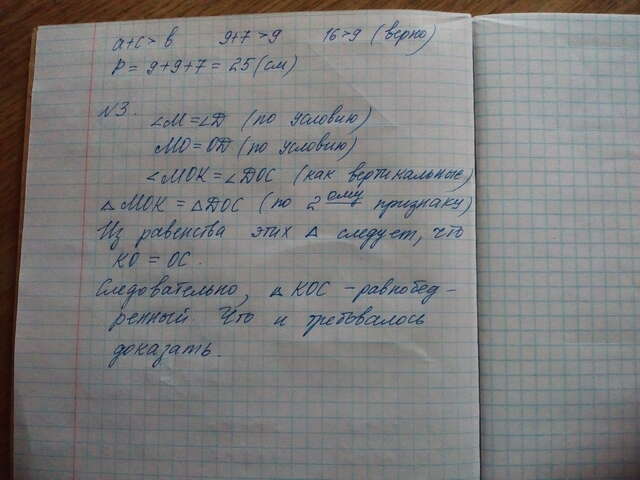 a+c > в 9+7 > 9 16 > 9 (верно)
P = 9+9+7 = 25 (см)
N3.
∠M = ∠D (по условию)
MO = OD (по условию)
∠MOK = ∠DOC (как вертикальные)
△MOK = △DOC (по 2 ому признаку)
Из равенства этих △ следует, что
KO = OC.
Следовательно, △ KOC – равнобед-
ренный. Что и требовалось
доказать.